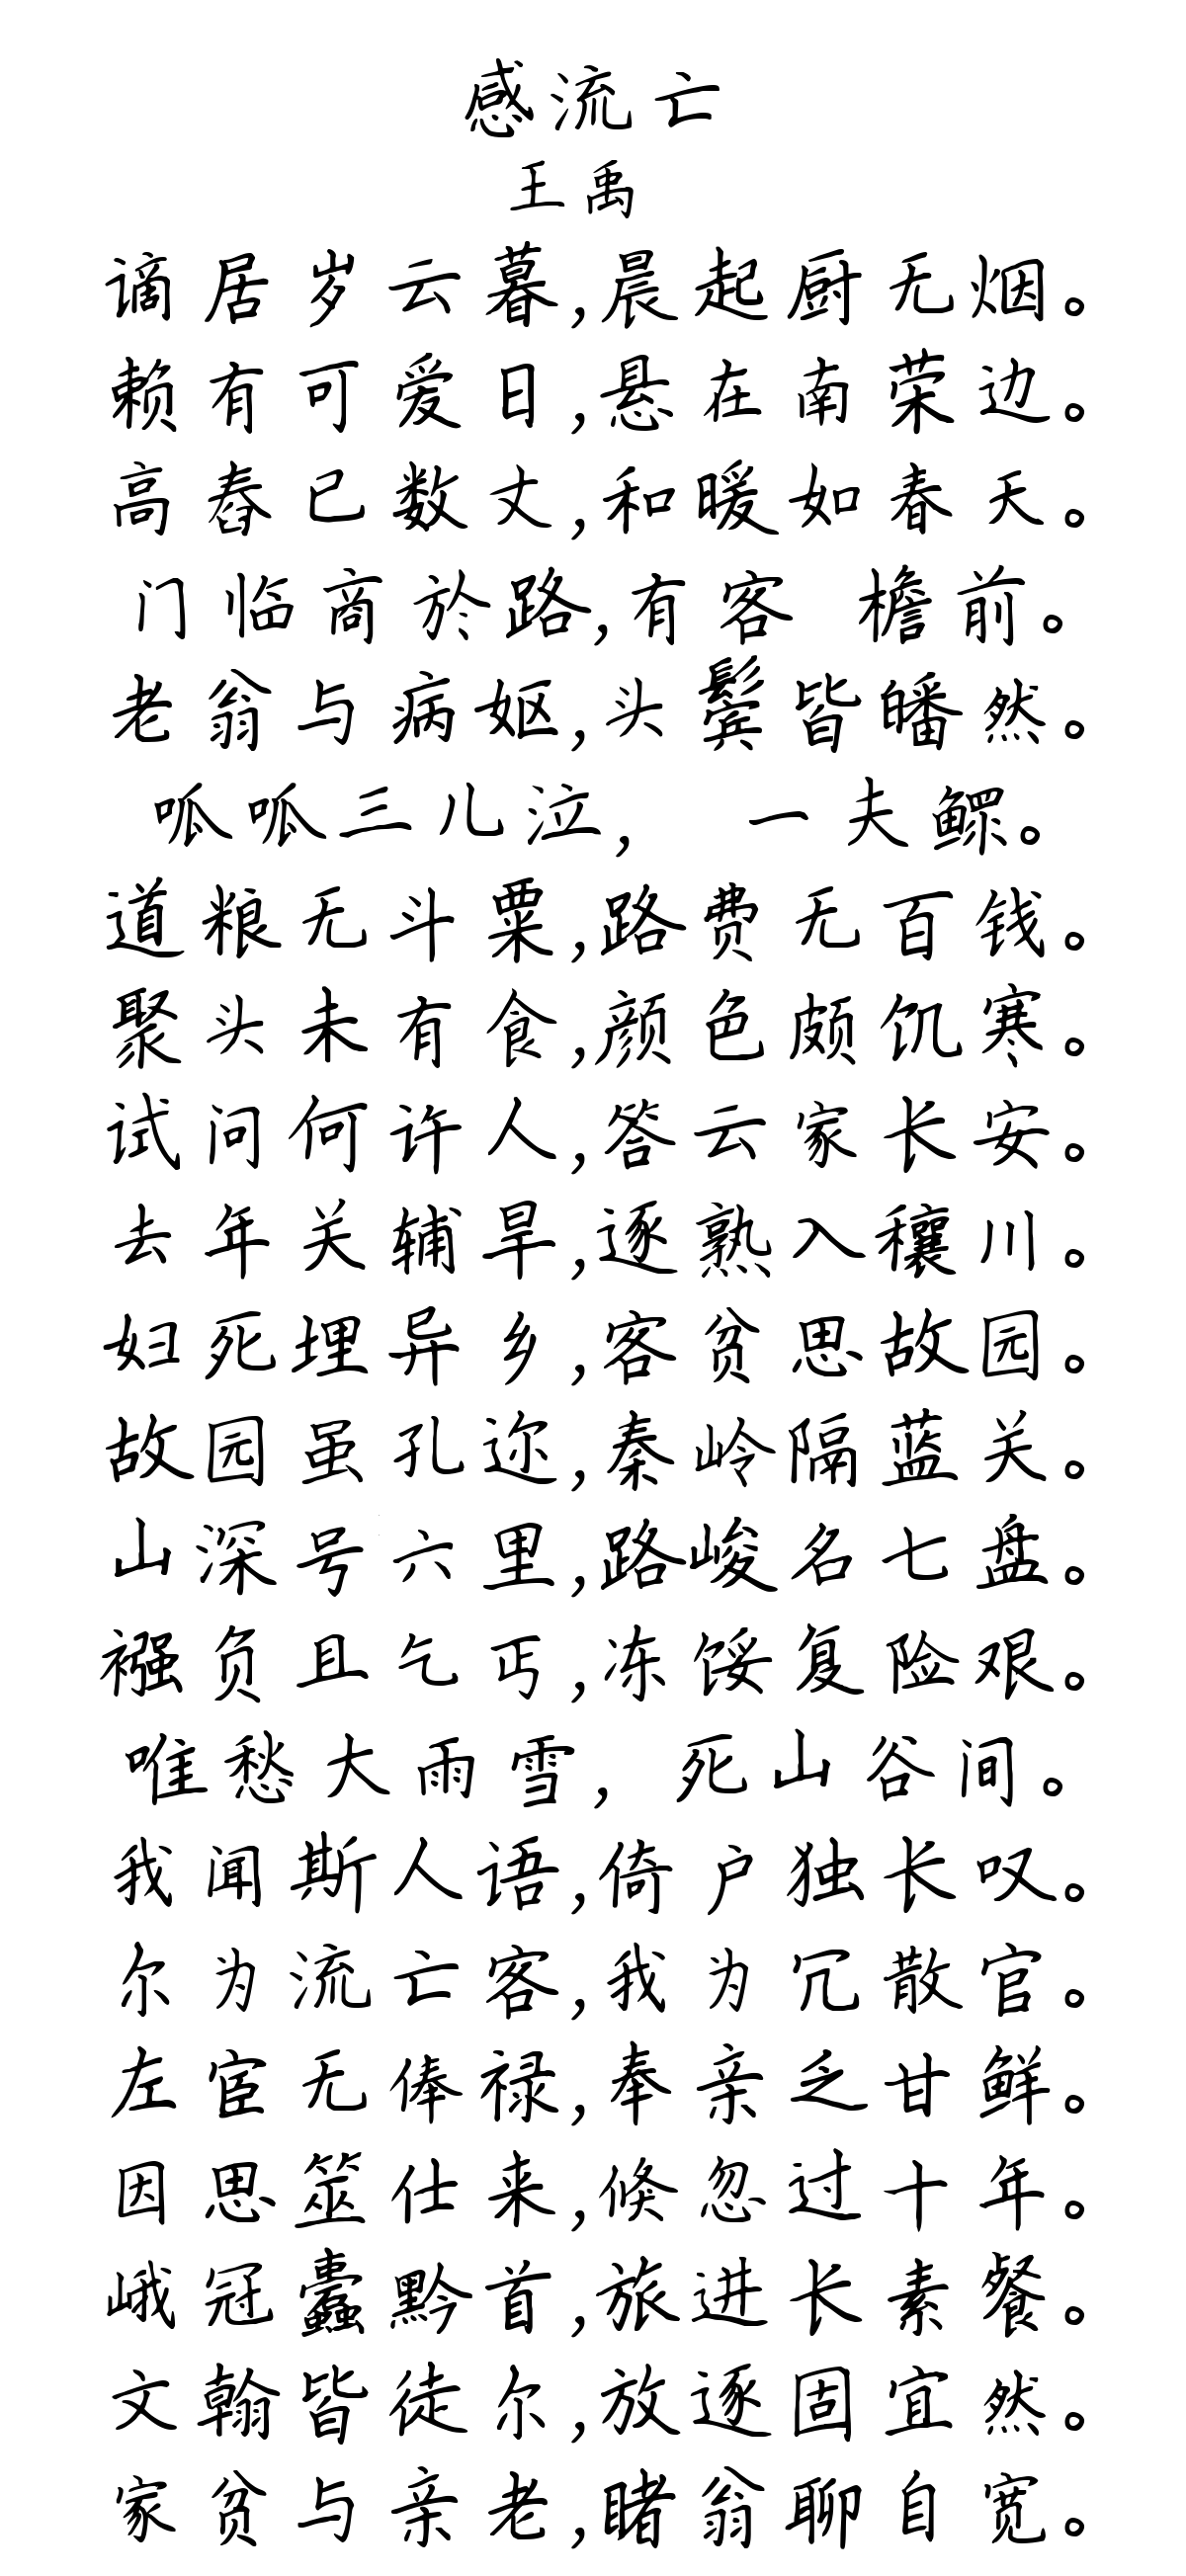 感流亡
王禹
谪居岁云暮,晨起厨无烟。
赖有可爱日,悬在南荣边。
高舂已数丈,和暖如春天。
门临商於路,有客 檐前。
老翁与病妪,头鬓皆皤然。
呱呱三儿泣, 一夫鳏。
道粮无斗粟,路费无百钱。
聚头未有食,颜色颇饥寒。
试问何许人,答云家长安。
去年关辅旱,逐熟入穰川。
妇死埋异乡,客贫思故园。
故园虽孔迩,秦岭隔蓝关。
山深号六里,路峻名七盘。
襁负且乞丐,冻馁复险艰。
唯愁大雨雪, 死山谷间。
我闻斯人语,倚户独长叹。
尔为流亡客,我为冗散官。
左宦无俸禄,奉亲乏甘鲜。
因思筮仕来,倏忽过十年。
峨冠蠹黔首,旅进长素餐。
文翰皆徒尔,放逐固宜然。
家贫与亲老,睹翁聊自宽。